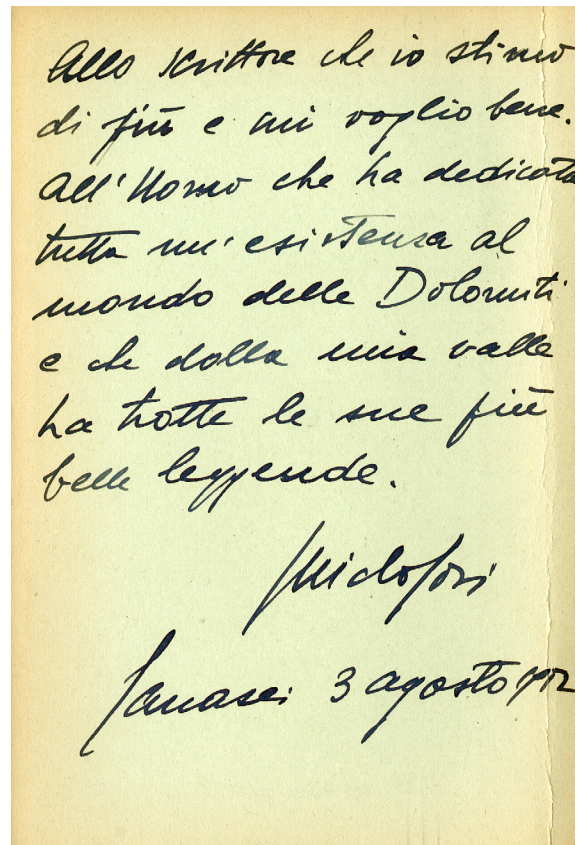 Allo scrittore che io stimo
di più e mi voglio bene.
All'Uomo che ha dedicata
tutta un'esistenza al
mondo delle Dolomiti
e che dalla mia valle
ha tratte le sue più
belle leggende.
3 agosto